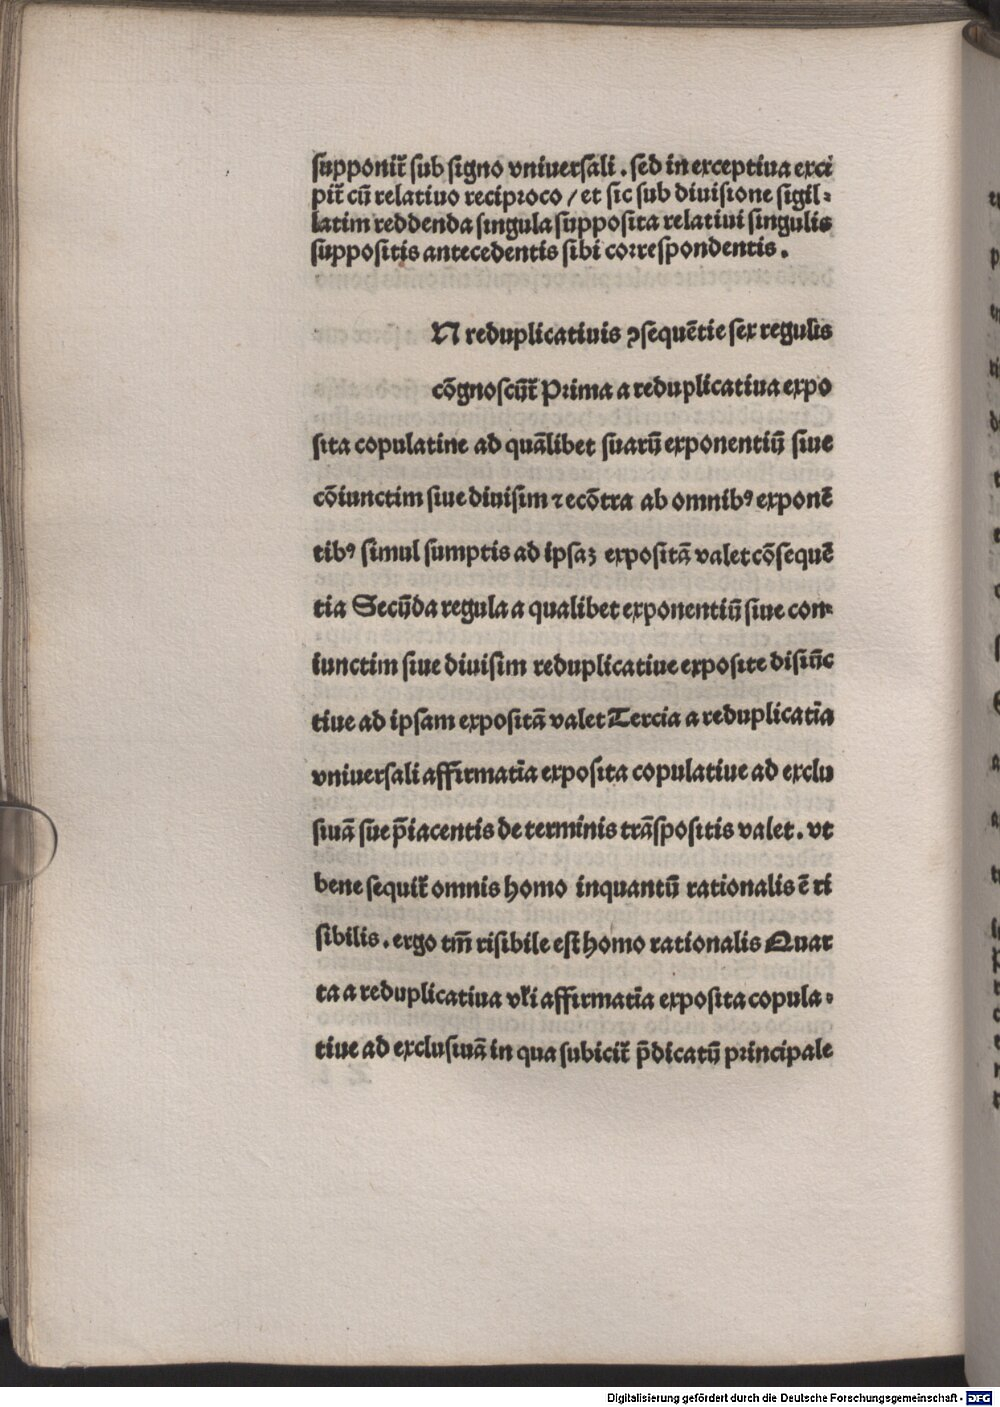 supponit᷑ sub signo vniuersali . sed in exceptiua exci
pit᷑ cū relatiuo reciproco / et sic sub diuisione sigil⸗
latim reddenda singula supposita relatiui singulis
suppositis antecedentis sibi correspondentis .
N reduplicatiuis ꝯsequētie sex regulis
cōgnoscūt᷑ Prima a reduplicatiua expo
sita copulatiue ad quālibet suarū exponentiū siue
cōiunctim siue diuisim ⁊ ecōtra ab omnibꝰ exponē
tibꝰ simul sumptis ad ipsaꝫ expositā valet cōsequē
tia Secūda regula a qualibet exponentiū siue con⸗
iunctim siue diuisim reduplicatiue exposite disiūc
tiue ad ipsam expositā valet Tercia a reduplicatīa
vniuersali affirmatīa exposita copulatiue ad exclu
siuā sue p̄iacentis de terminis trāspositis valet . vt
bene sequit᷑ omnis homo inquantū rationalis ē ri
sibilis . ergo tm̄ risibile est homo rationalis Quar
ta a reduplicatiua vl̄i affirmatīa exposita copula⸗
tiue ad exclusiuā in qua subicit᷑ p̄dicatū principale
Digitalisierung gefördert durch die Deutsche Forschungsgemeinschaft - DFG